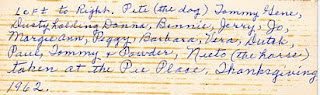 Left to Right. Pete (the dog) Tommy Gene,
Dusty holding Donna, Bennie, Jerry, Jo,
Margie ann, Peggy Barbara, Vera, Dutch,
Paul, Tommy & Powder, Nieto (the horse)
taken at the Pie Place, Thanksgiving
1962.